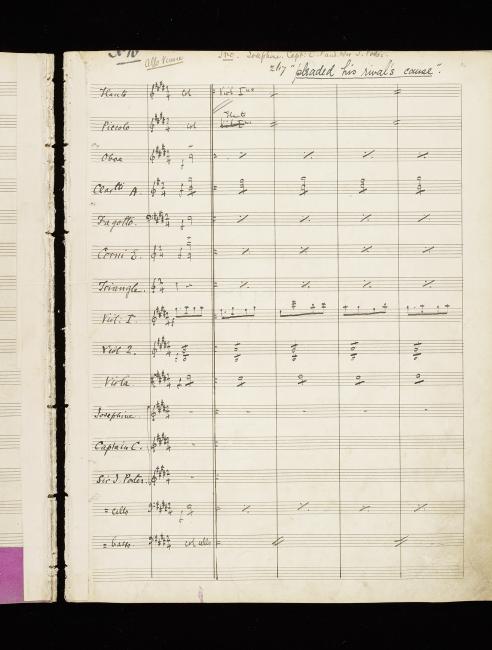 No 16 Allo Vivace Trio. Josephine, Capt: C. and Sir J. Porter.
"pleaded his rival's cause".
Flauto col Viol I mo
Piccolo col Flauto
Oboe
Cleartti A.
Fagotto.
Corni E.
Triangle.
Viol: I.
Viol 2.
Viola
Josephine
Captain C.
Sir J. Porter.
= cello
= basso. col cello